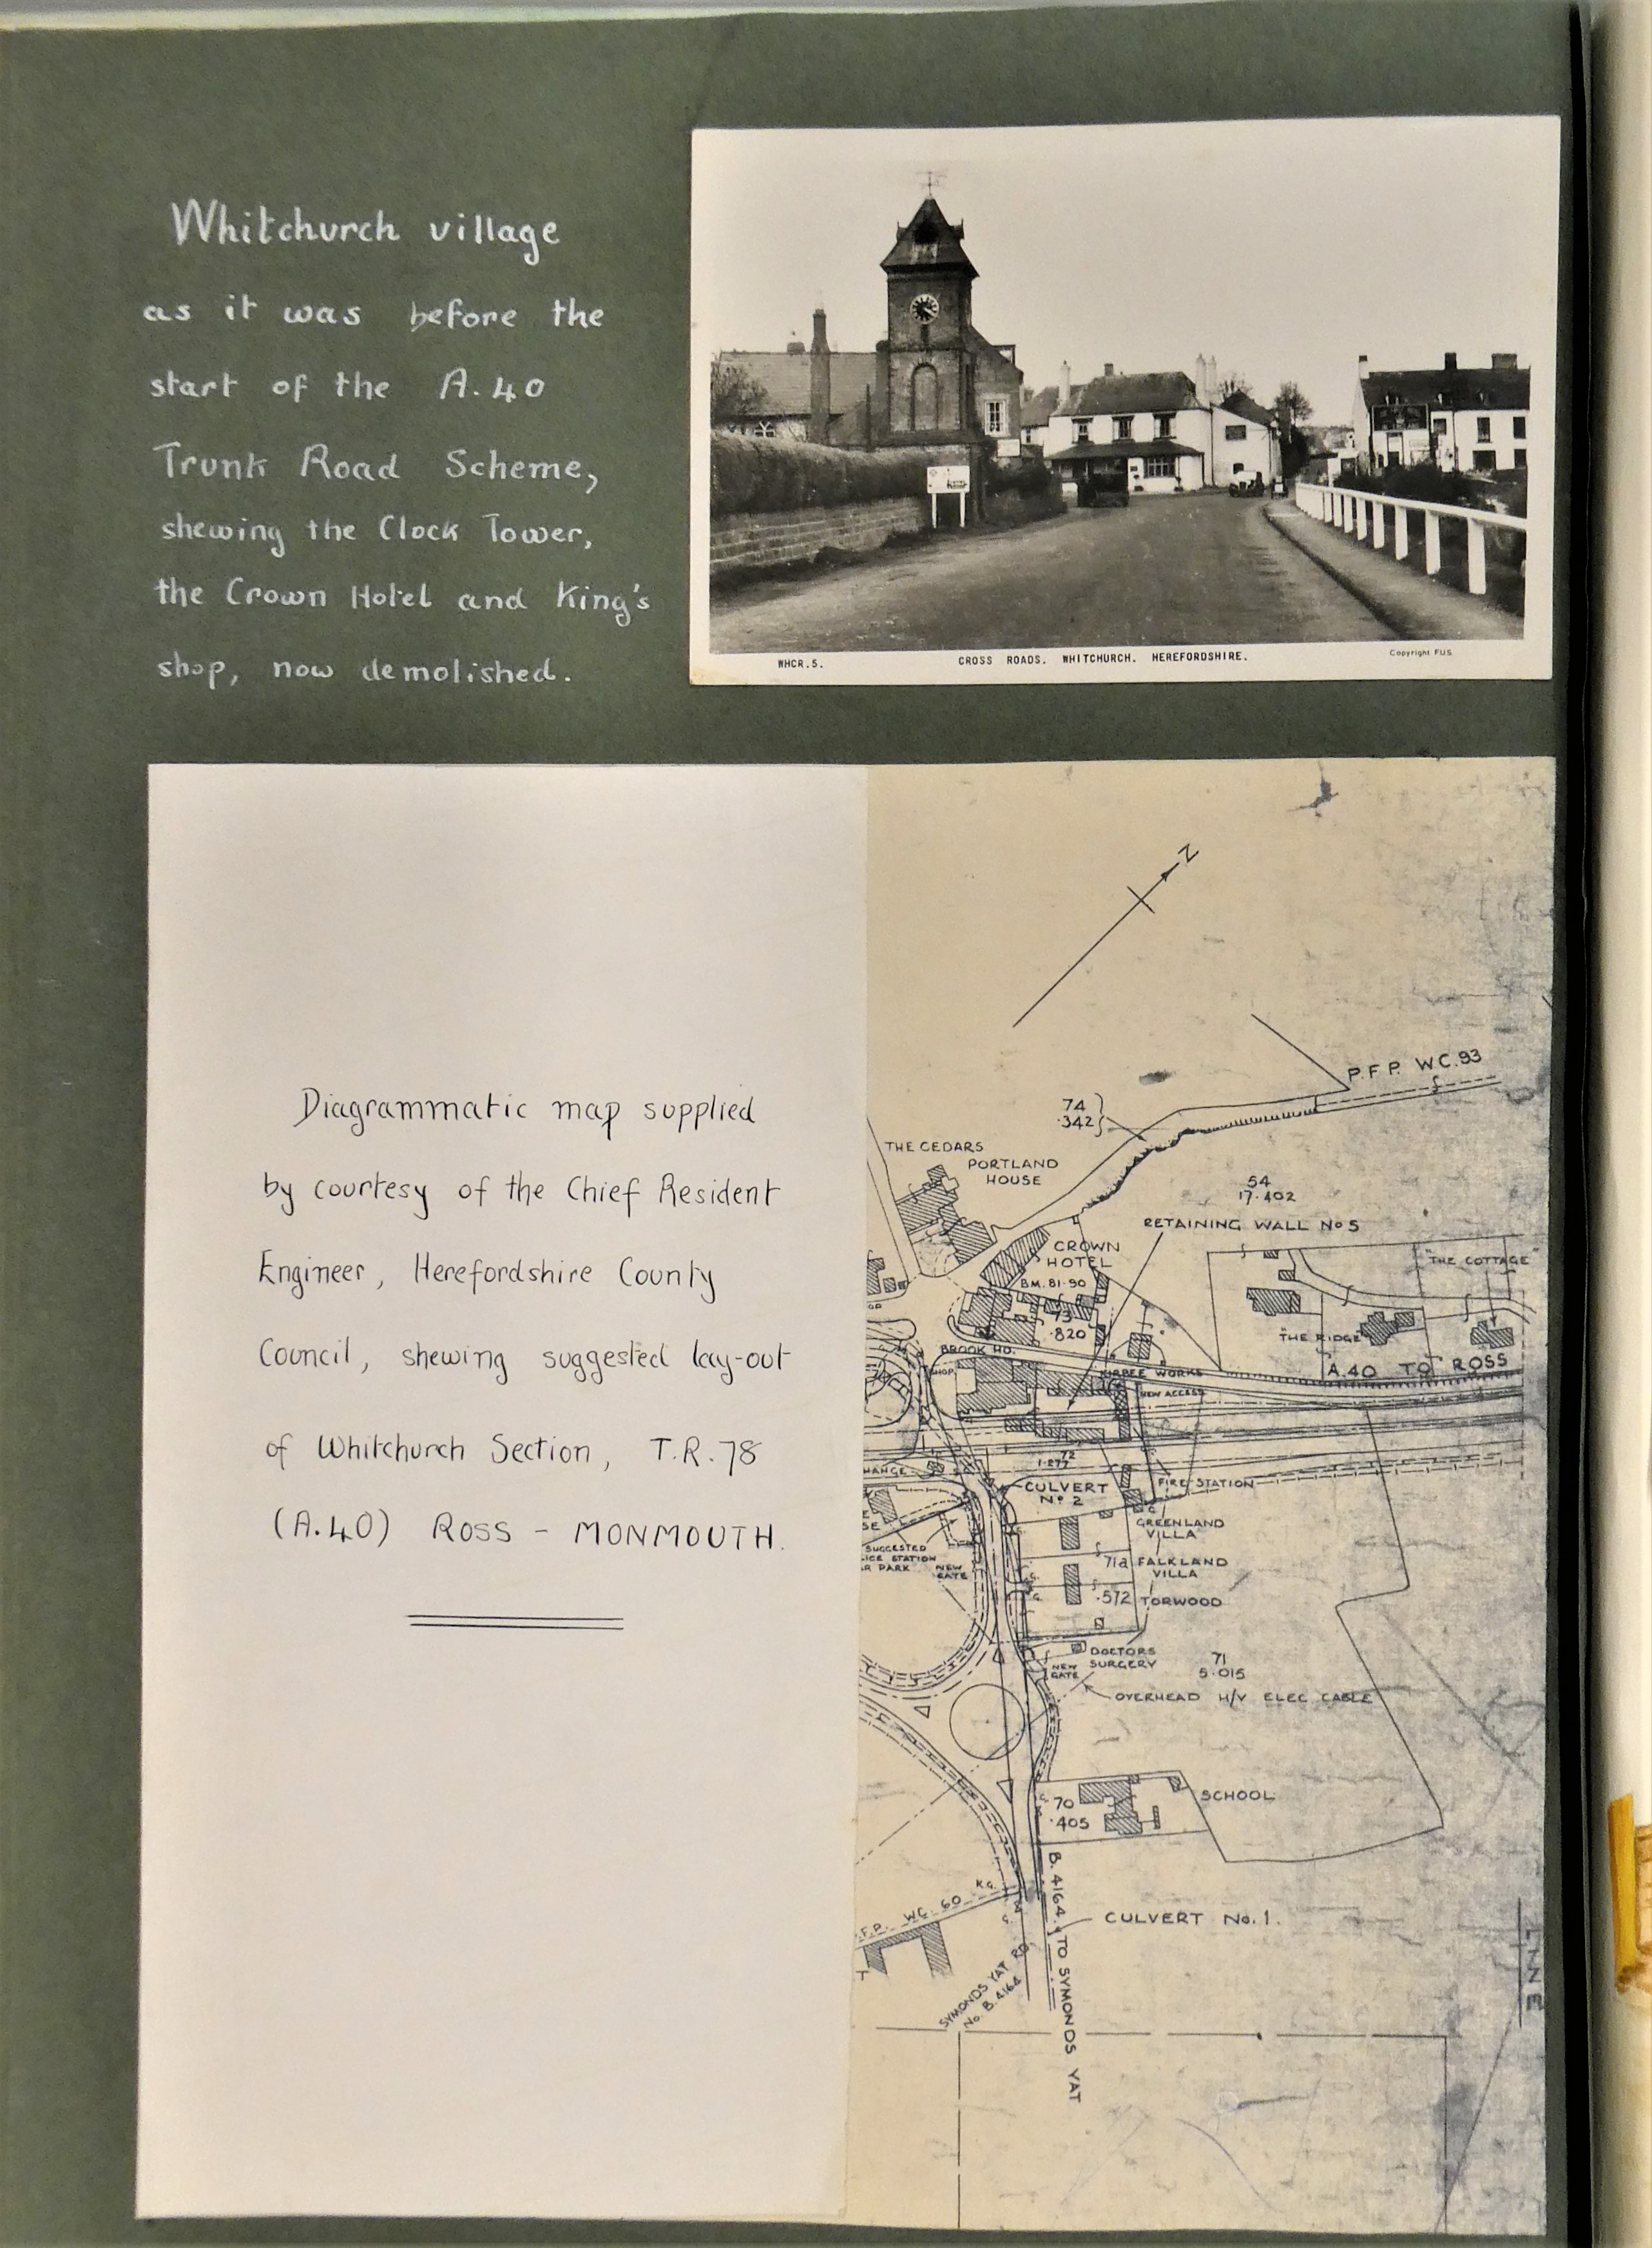 Whitchurch village
as it was before the
start of the A.40
Trunk Road Scheme,
shewing the Clock Tower,
the Crown Hotel and King's
shop, now demolished.
WHCR.5.
CROSS ROADS. WHITCHURCH. HEREFORDSHIRE.
Copyright F.U.S
Diagrammatic map supplied
by courtesy of the Chief Resident
Engineer, Herefordshire County
Council, shewing suggested lay-out
of Whitchurch Section, T.R.78
(A.40) ROSS - MONMOUTH.
N
P.F.P. W.C.93
74
.342
THE CEDARS
PORTLAND
HOUSE
54
17.402
RETAINING WALL No 5
CROWN
HOTEL
B.M. 81.90
"THE COTTAGE"
73
.820
"THE RIDGE"
BROOK HO.
SHOP
A.40 TO ROSS
WORKS
NEW ACCESS
72
1.277
HANGE
CULVERT
No 2
FIRE STATION
GREENLAND
VILLA
SUGGESTED
ICE STATION
R PARK
NEW
GATE
71a FALKLAND
VILLA
.572 TORWOOD
DOCTORS
SURGERY
NEW
GATE
71
5.015
OVERHEAD H/V ELEC CABLE
SCHOOL
70
.405
B.4164 TO SYMONDS YAT
K.G.
F.P. W.C. 60
CULVERT No.1.
SYMONDS YAT RD
No. B.4164